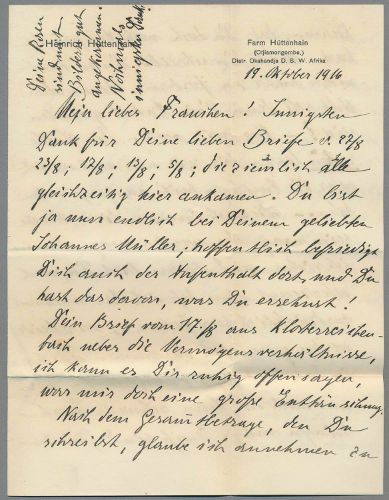 Heinrich Hüttenhain
Farm Hüttenhain
(Otjiamongombe,)
Distr. Okahandja D. S. W. Afrika
19. Oktober 1916
Bilder gut
angekommen.
Nochmals
innigsten Dank!
Mein lieber Frauchen! Innigsten
Dank für Deine lieben Briefe v. 22/8
23/8; 12/8; 15/8; 5/8; die ziemlich alle
gleichzeitig hier ankamen. Du bist
ja nun endlich bei Deinem geliebten
Johannes Müller; hoffentlich befriedigt
Dich auch der Aufenthalt dort, und Du
hast das davon, was Du ersehnst!
Dein Brief vom 17./8 aus Klosterreichen-
bach ueber die Vermögensverhältnisse,
ich kann es Dir ruhig offen sagen,
war mir doch eine große Enttäuschung.
Nach dem Gesamtbetrage, den Du
schreibst, glaube ich annehmen zu